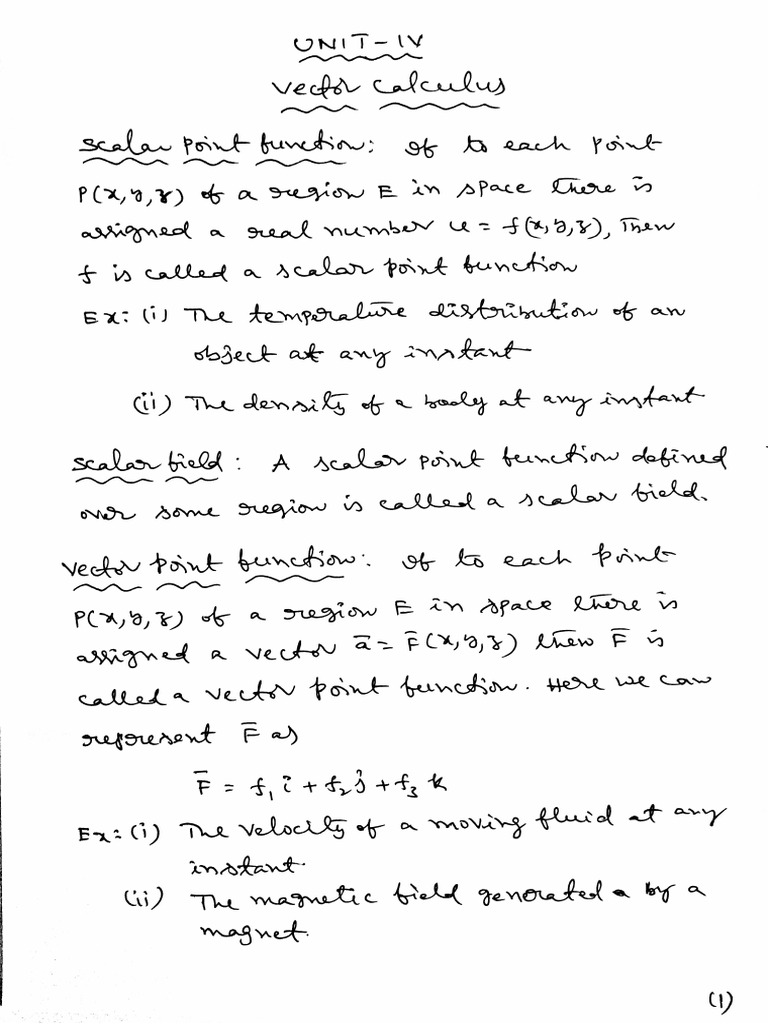 UNIT-IV
Vector Calculus
Scalar point function: If to each point
P(x,y,z) of a region E in space there is
assigned a real number u = f(x,y,z), then
f is called a scalar point function
Ex: (i) The temperature distribution of an
object at any instant
(ii) The density of a body at any instant
Scalar field: A scalar point function defined
over some region is called a scalar field.
Vector point function: If to each point
P(x,y,z) of a region E in space there is
assigned a vector ā = F̄(x,y,z) then F̄ is
called a vector point function. Here we can
represent F̄ as
F̄ = f₁ i + f₂ j + f₃ k
Ex: (i) The velocity of a moving fluid at any
instant.
(ii) The magnetic field generated by a
magnet.
(1)